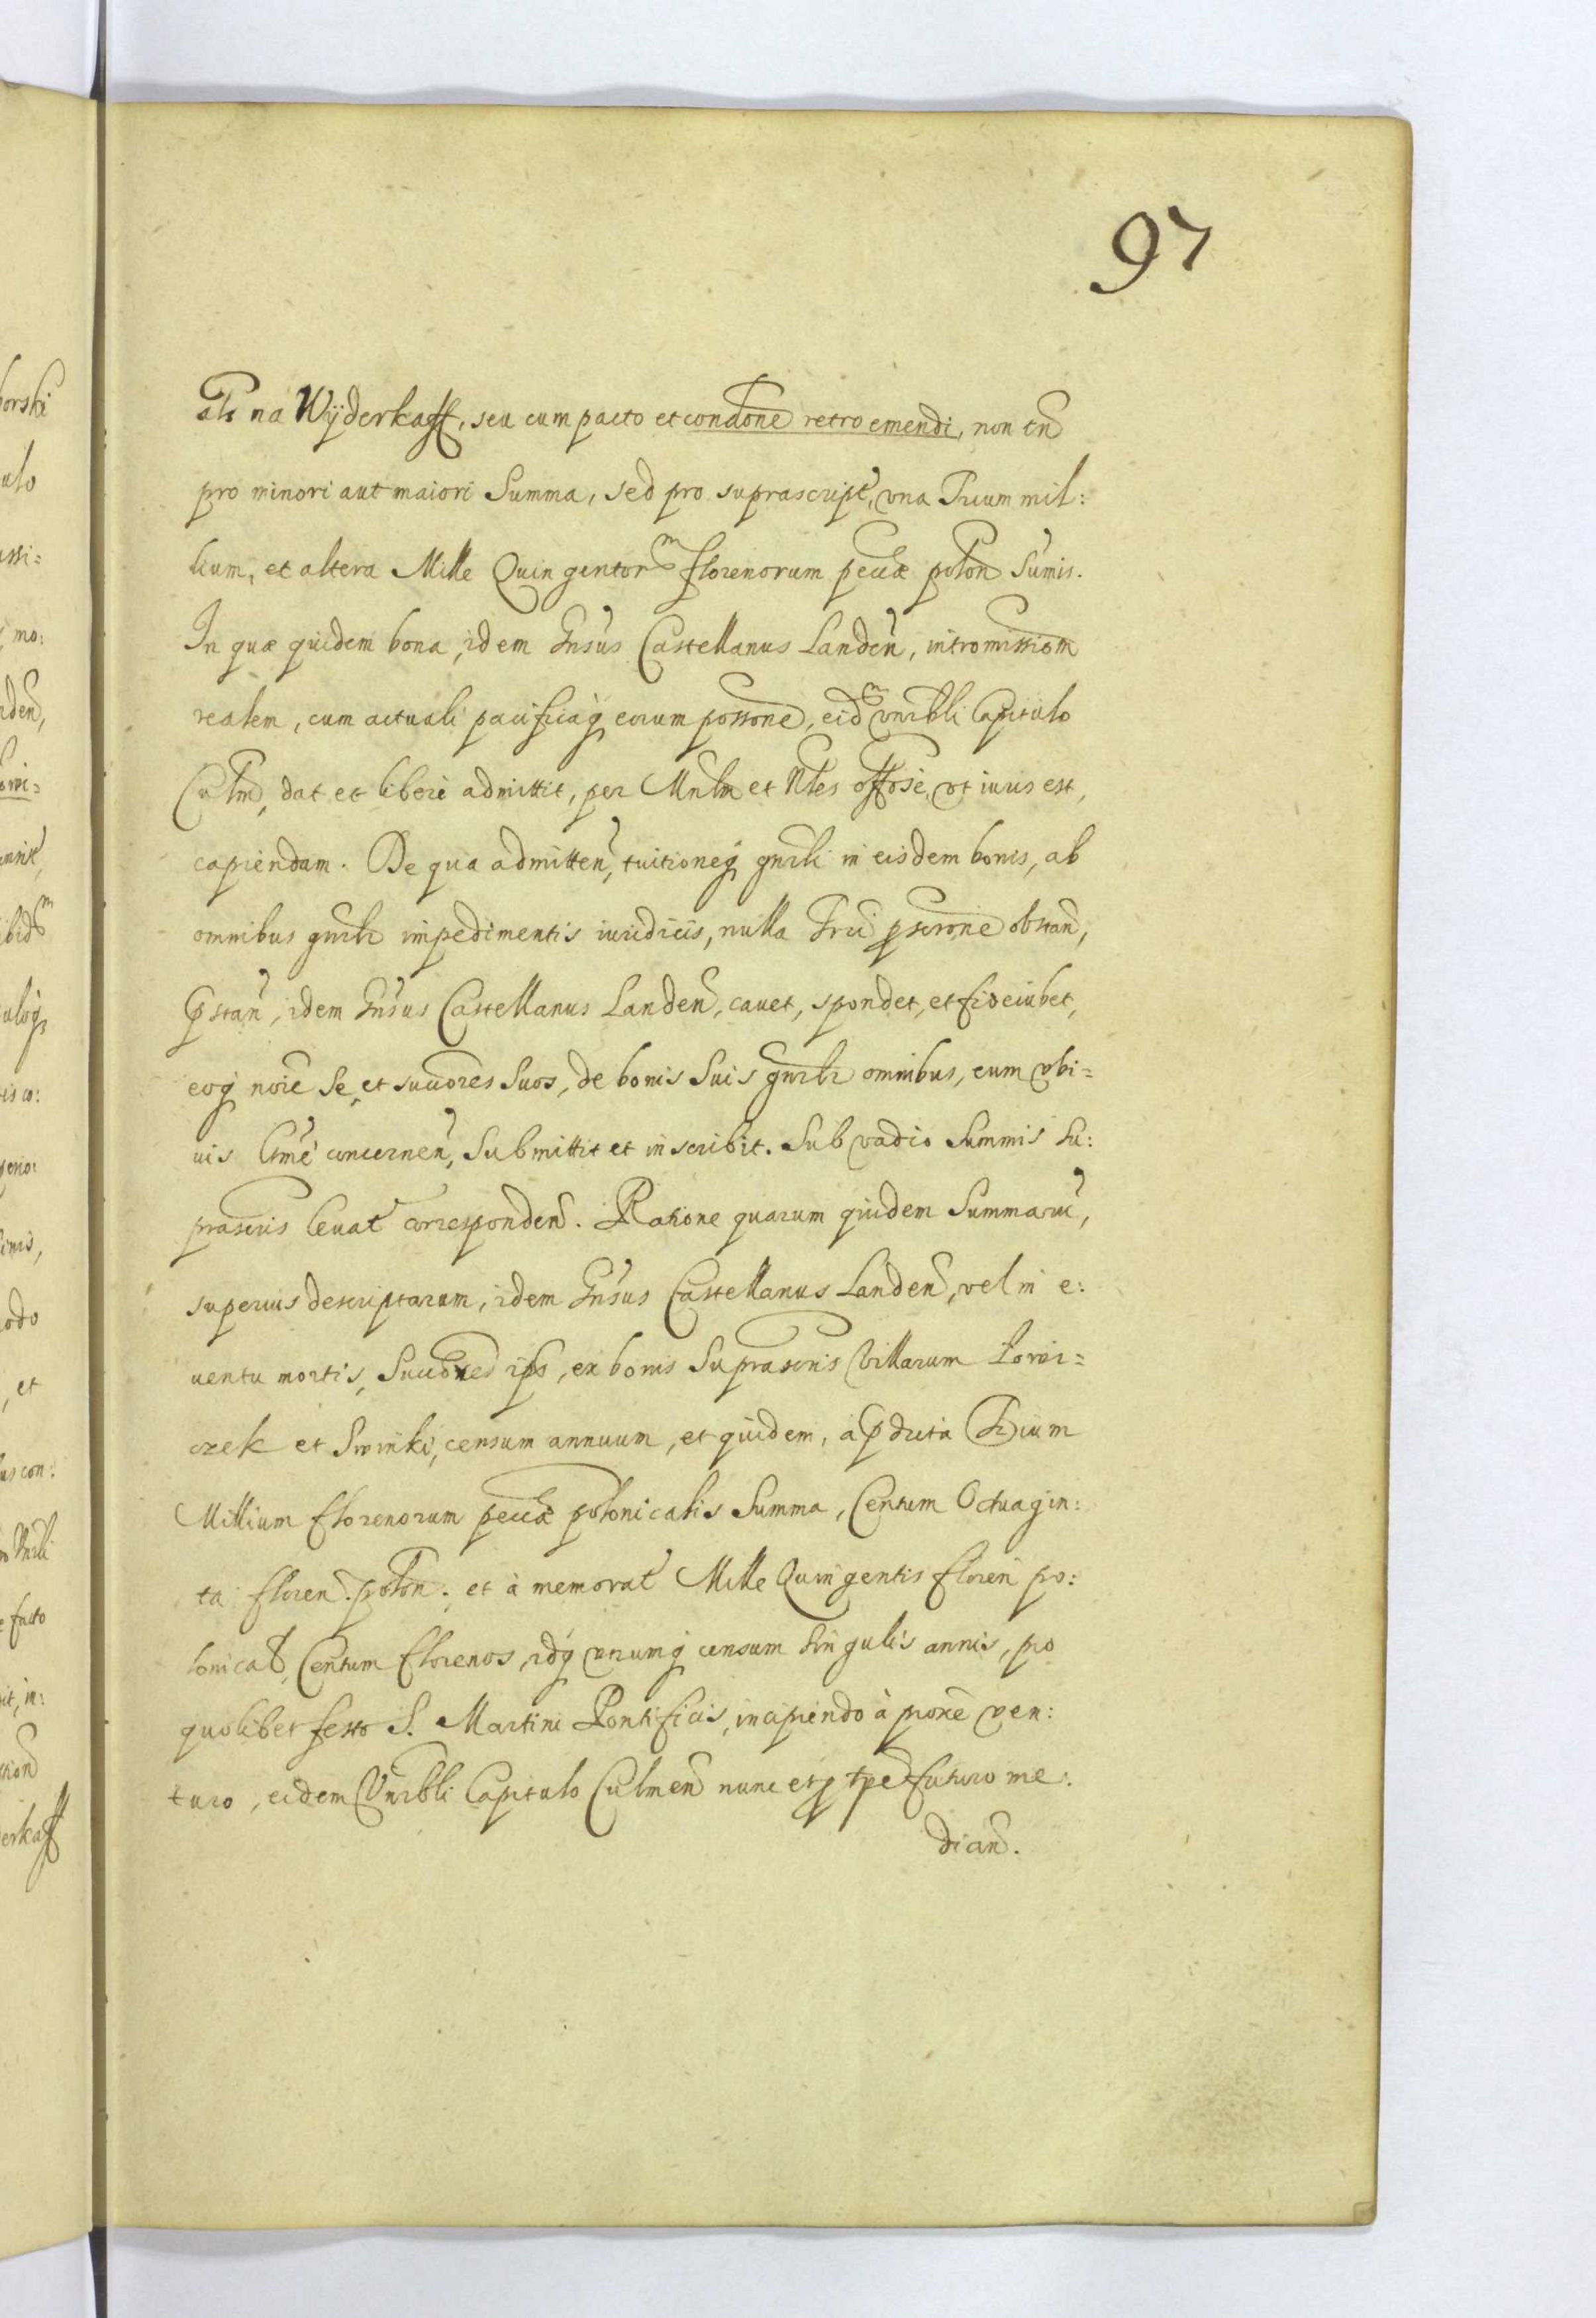 97
als na Wÿderkaff, seu cum pacto et condone retro emendi, non tn
pro minori aut maiori Summa, sed pro suprascript, vna Trium mil:
lium, et altera Mille Quingentor florenorum pecclæ polon Sumis.
In quæ quidem bona, idem Gnsus Castellanus Landen, intromissiom
realem, cum actuali pacificaq eorum possone, eidm vnrbli Capitulo
Culm, dat et libere admittit, per Mnlm et Nles offose, vt iuris est,
capiendam. De qua admitten, tuitioneq gnrli in eisdem bonis, ab
omnibus gnrlr impedimentis iuridicis, nulla obstan,
pstan, idem Gnsus Castellanus Landen, cauet, spondet, et fideiubet,
eoq noie se, et succores suos, de bonis suis gnrlr omnibus, eum vbi=
uis concernen, Submittit et inscribit. Sub vadio Summis su:
prascris leuat corresponden. Ratione quarum quidem Summaru,
superius descriptarum, idem Gnsus Castellanus Landen, vel in e:
uentu mortis, Succores ips, ex bonis Suprascris Villarum Lowi=
czek et Swinki, censum annuum, et quidem, à pdicta Trium
Millium florenorum pecclæ polonicalis Summa, Centum Octuagin:
ta floren. polon. et à memorat Mille Quingentis floren po:
lonical, Centum florenos, idq vtrumq censum singulis annis, pro
quolibet festo S. Martini Pontificis, incipiendo à proxe ven:
turo, eidem Vnrbli Capitulo Culmen nunc et p tpe futuro me:
dian.
borski
ulo
assi=
mo:
nden,
ibidm
is co:
imis,
odo
, et
us con:
e facto
it, in:
erkaff